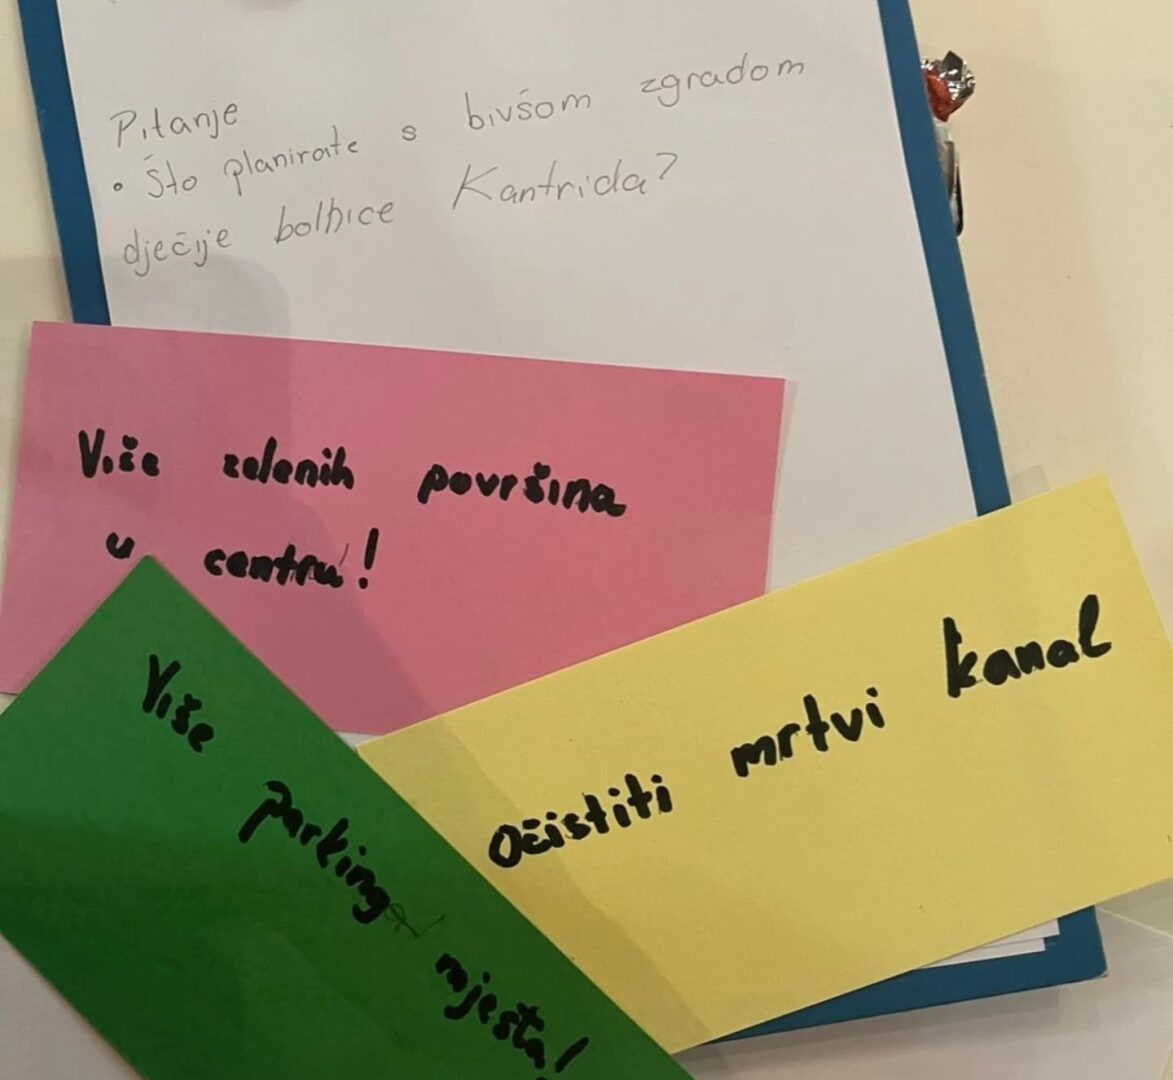 Pitanje
• Što planirate s bivšom zgradom
dječije bolnice Kantrida?
Više zelenih površina
u centru!
Očistiti mrtvi kanal
Više
parking
mjesta!